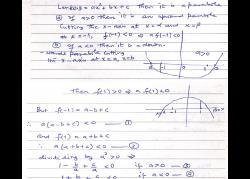 Let f(x) = ax² + bx + c is a parabola
if a>0 then it is an upward parabola
cutting the x-axis at x=α and x=β
at x=-1, f(-1) <0 ⇒ a f(-1) <0
if a<0 then it is a down-
wards parabola cutting
the x-axis at x=α, x=β
a>0
-1
Then f(-1)>0 ⇒ a f(-1)<0
But f(-1) = a-b+c
∴ a(a-b+c) <0 — ①
and f(1) = a+b+c
∴ a(a+b+c) <0 — ②
dividing by a² >0 ⇒
1 - b/a + c/a <0 if a>0 — ③
1 + b/a + c/a <0 if a<0 — ④
-1